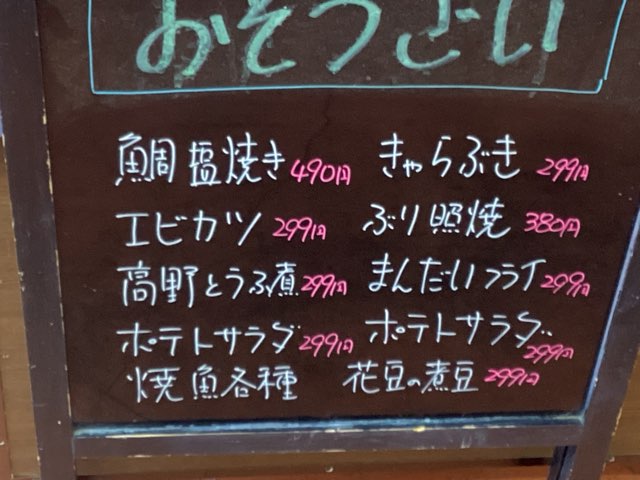 おそうざい
鯛塩焼き 490円
きゃらぶき 299円
エビカツ 299円
ぶり照焼 380円
高野とうふ煮 299円
まんだいフライ 299円
ポテトサラダ 299円
ポテトサラダ 299円
焼魚各種
花豆の煮豆 299円